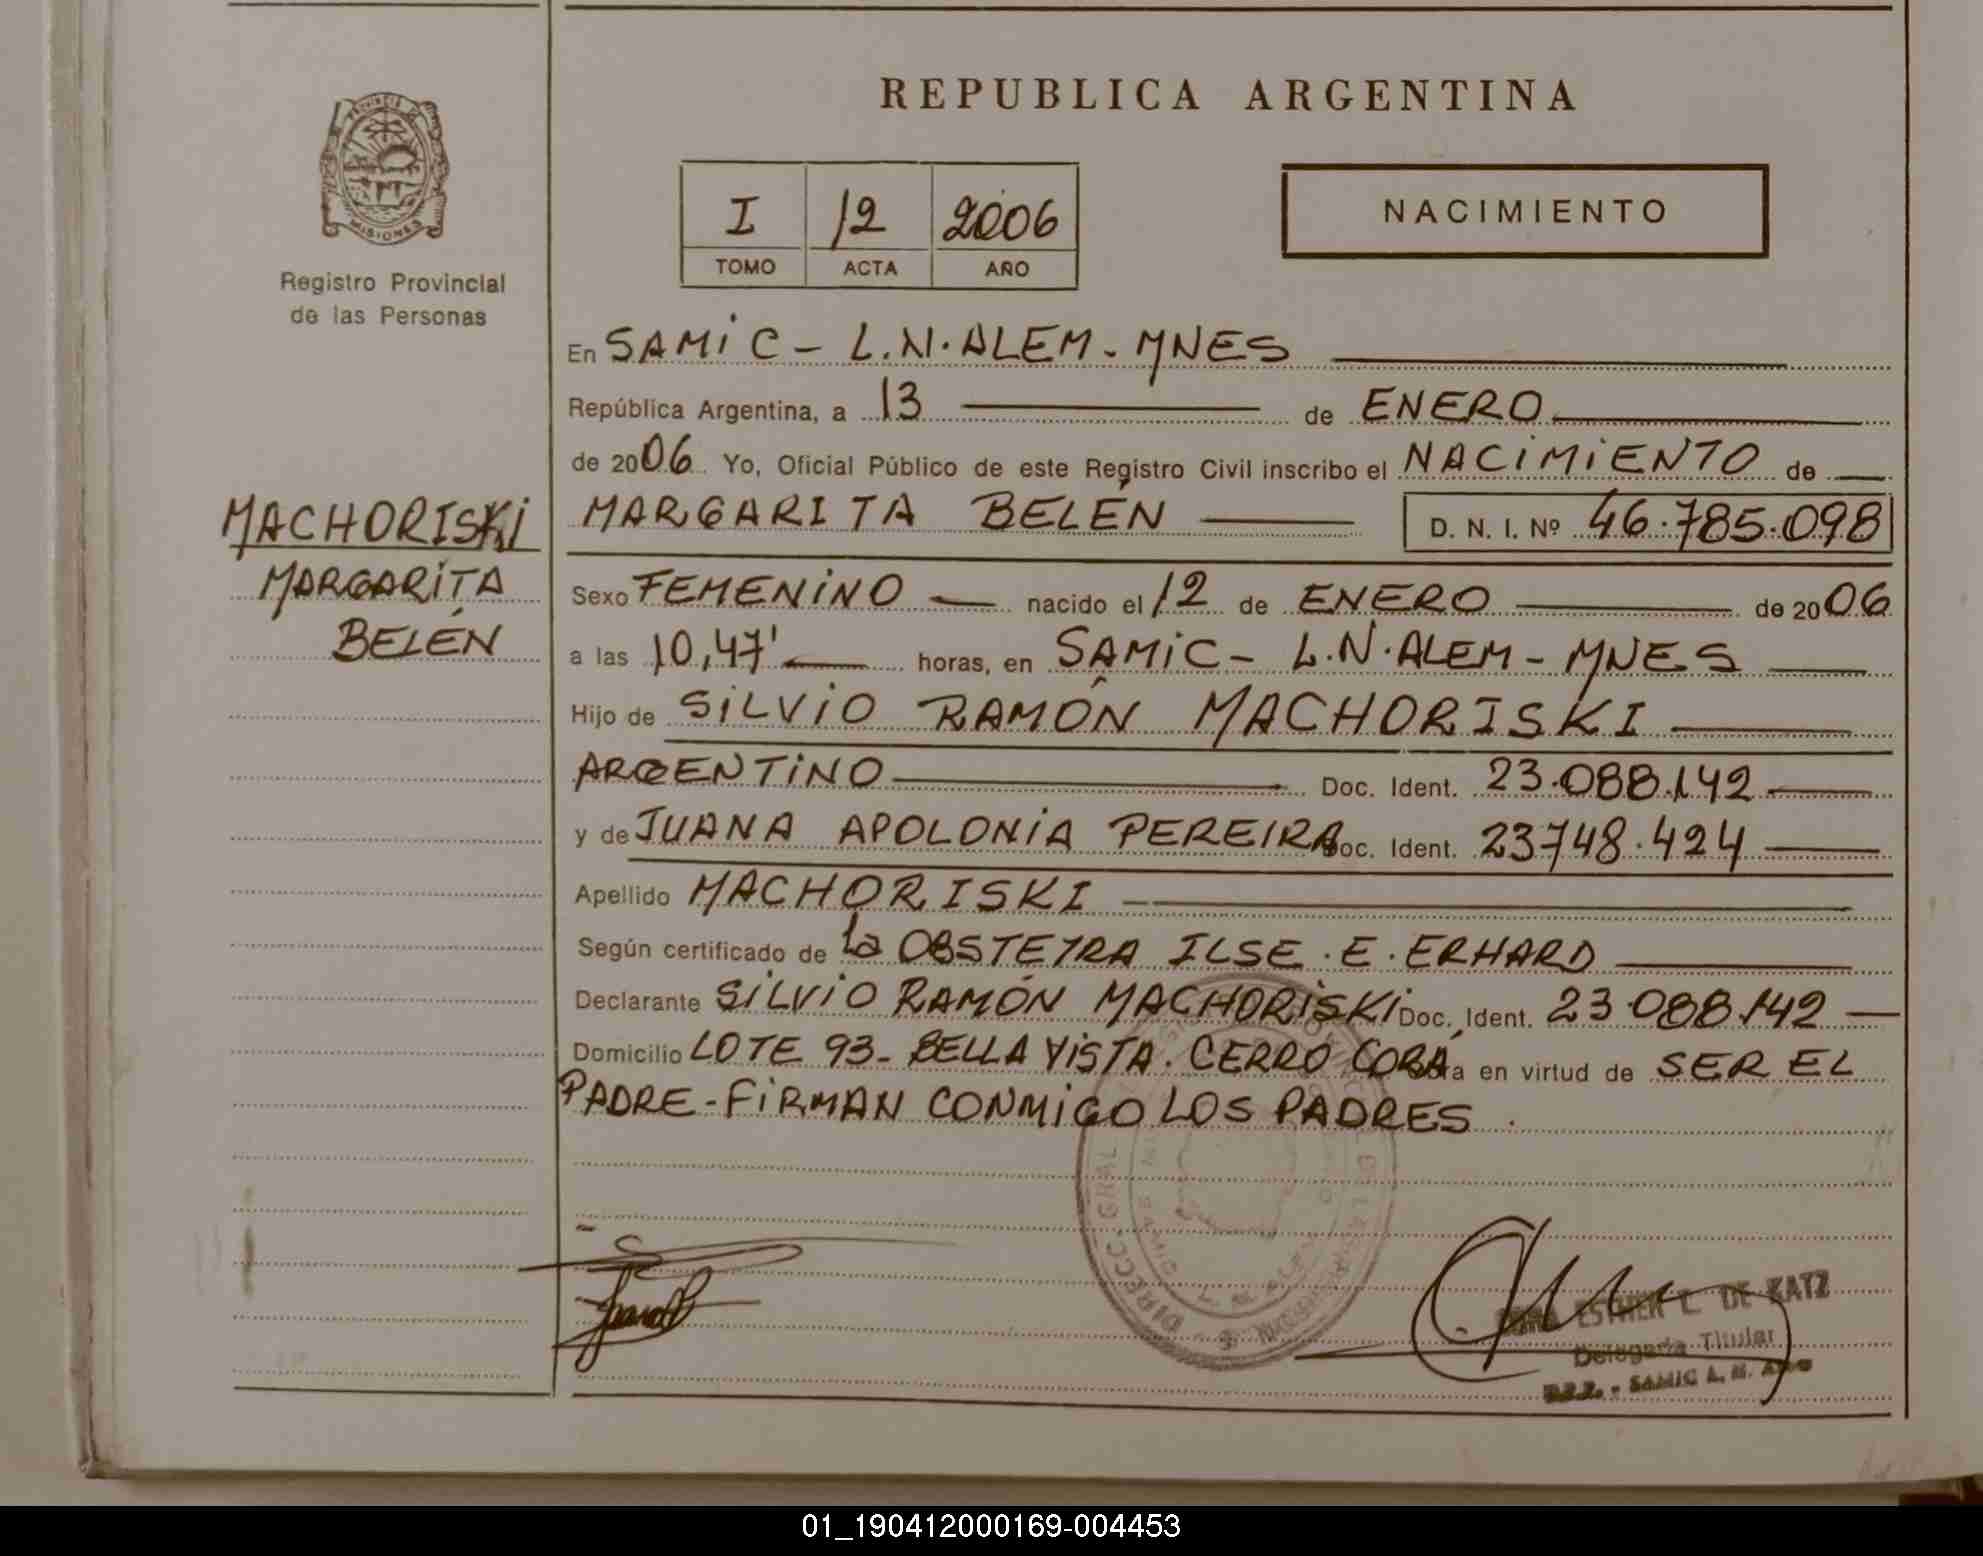 REPUBLICA ARGENTINA
PROVINCIA DE
MISIONES
Registro Provincial
de las Personas
I 12 2006
TOMO ACTA AÑO
NACIMIENTO
En SAMIC - L.N. ALEM - MNES
República Argentina, a 13 de ENERO
de 2006 Yo, Oficial Público de este Registro Civil inscribo el NACIMIENTO de
MACHORISKI
MARGARITA
BELÉN
MARGARITA BELÉN D. N. I. Nº 46.785.098
Sexo FEMENINO nacido el 12 de ENERO de 2006
a las 10,47' horas, en SAMIC - L.N. ALEM - MNES
Hijo de SILVIO RAMÓN MACHORISKI
ARGENTINO Doc. Ident. 23.088.142
y de JUANA APOLONIA PEREIRA Doc. Ident. 23748.424
Apellido MACHORISKI
Según certificado de la OBSTETRA ILSE . E . ERHARD
Declarante SILVIO RAMÓN MACHORISKI Doc. Ident. 23.088.142
Domicilio LOTE 93 - BELLA VISTA . CERRO CORÁ Obra en virtud de SER EL
PADRE - FIRMAN CONMIGO LOS PADRES .
DIRECC. GRAL
ESTHER DE KATZ
Delegada Titular
SAMIC L. N.
01_190412000169-004453